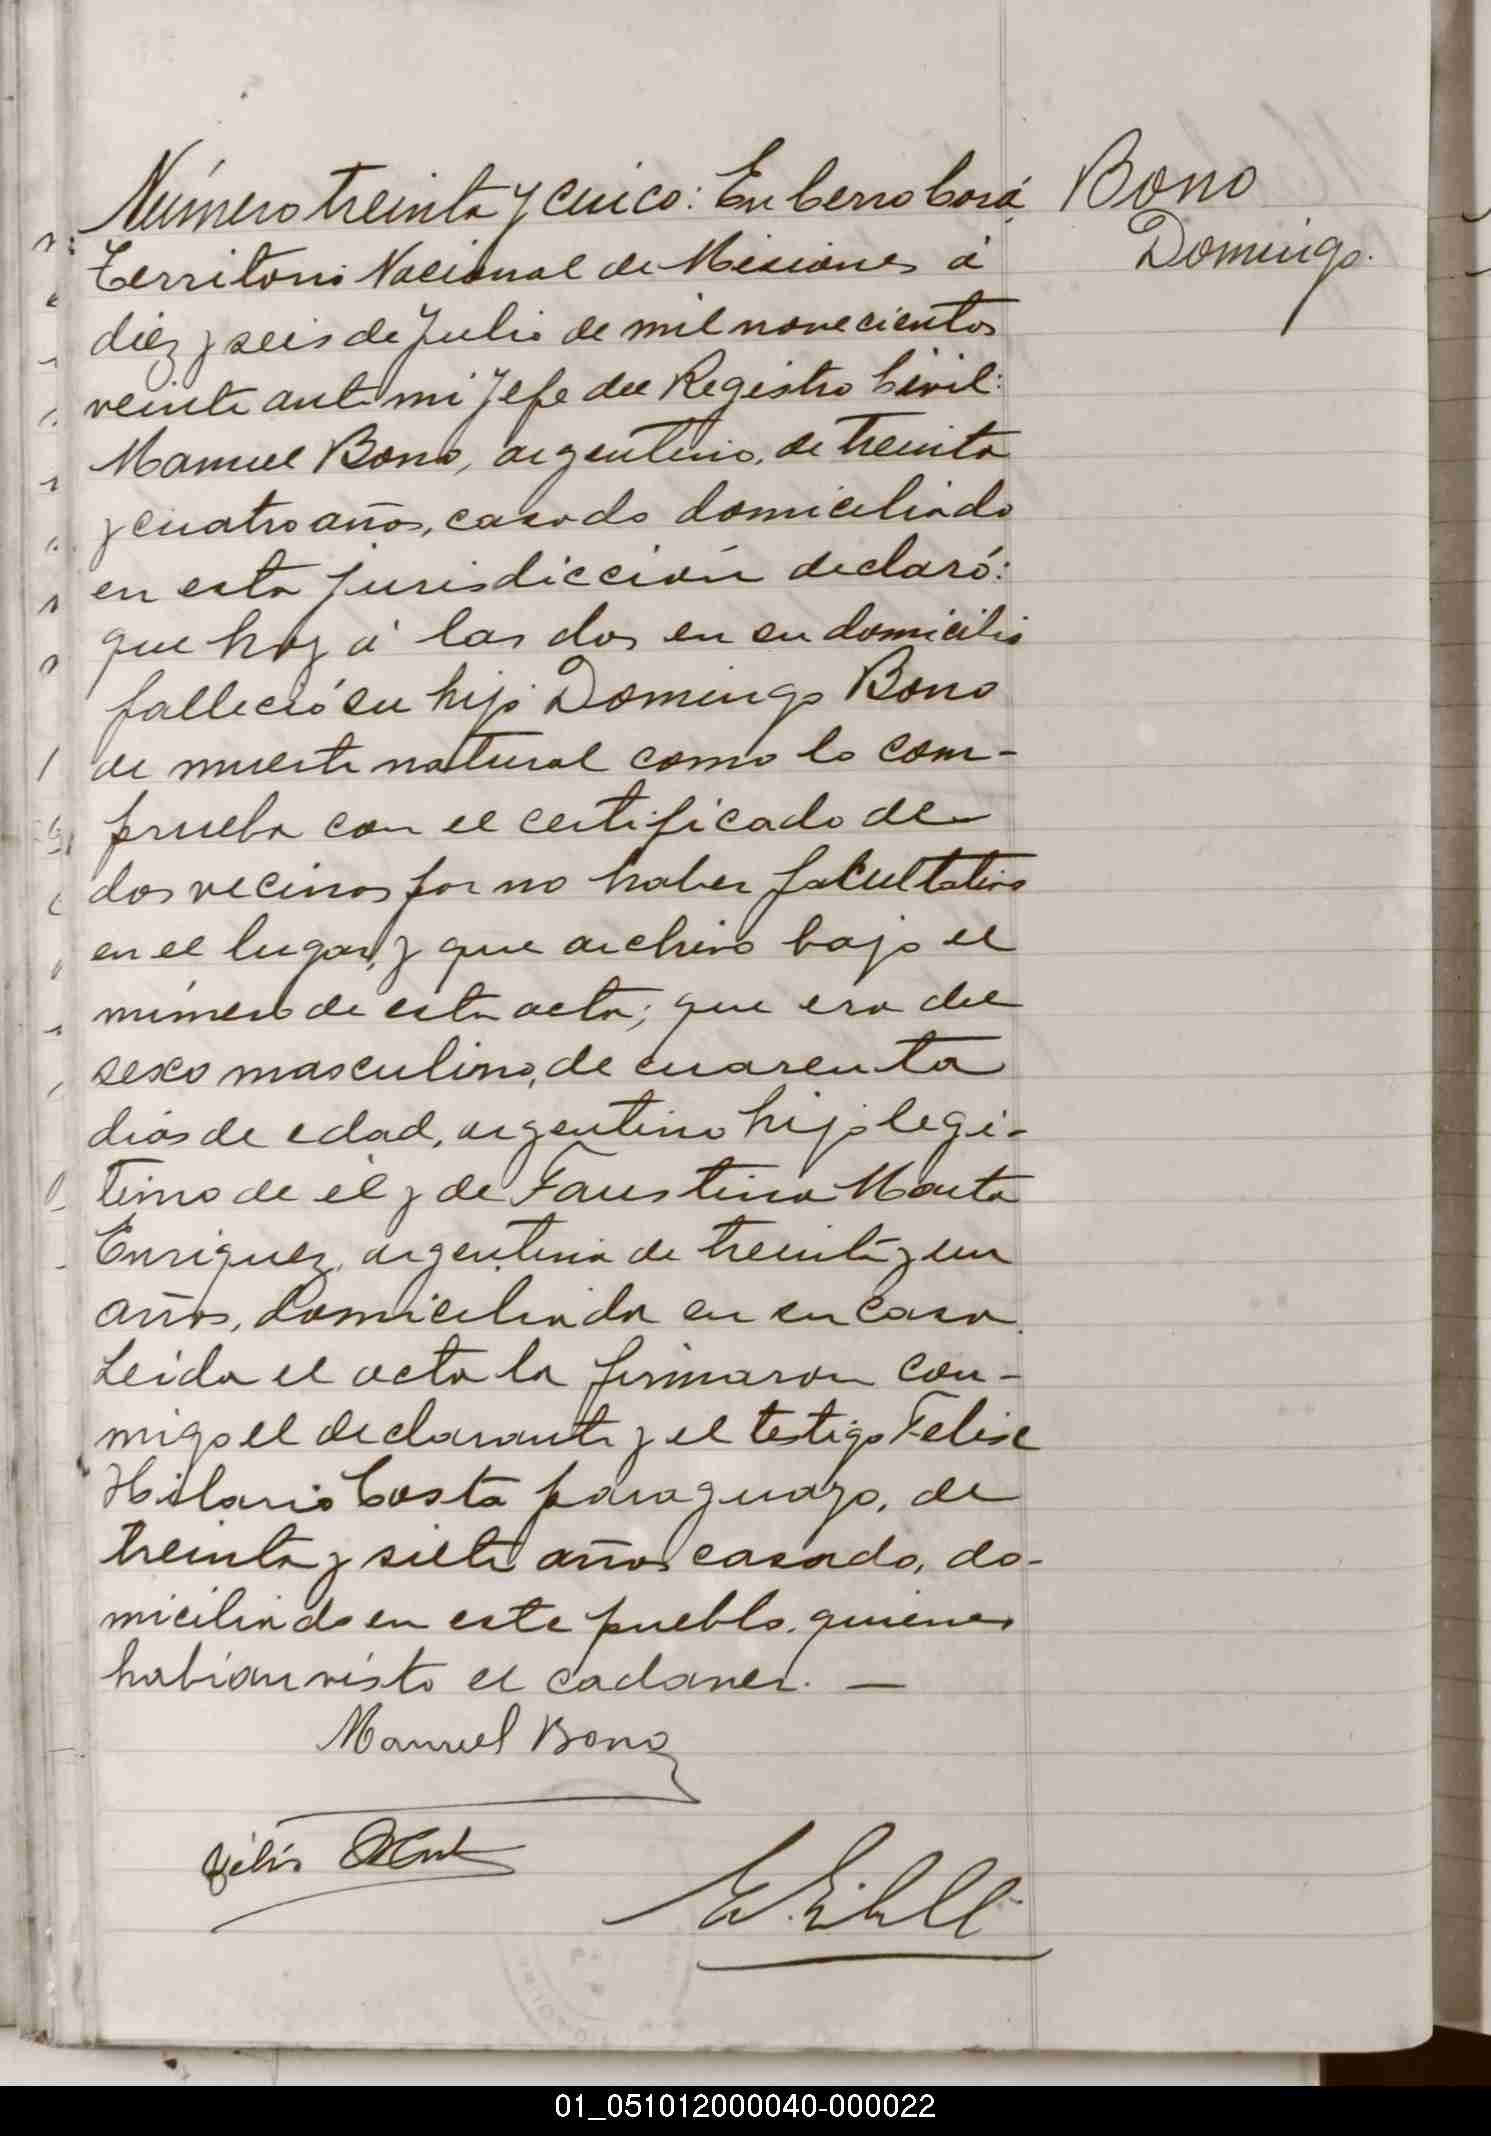 Número treinta y cinco: En Cerro Corá
Bono
Domingo.
Territorio Nacional de Misiones á
diez y seis de Julio de mil novecientos
veinte ante mi Jefe del Registro Civil:
Manuel Bono, argentino, de treinta
y cuatro años, casado domiciliado
en esta jurisdicción declaró:
que hoy á las dos en su domicilio
falleció su hijo Domingo Bono
de muerte natural como lo com-
prueba con el certificado de
dos vecinos por no haber facultativo
en el lugar, y que archivo bajo el
número de esta acta; que era del
sexo masculino, de cuarenta
dias de edad, argentino hijo legi-
timo de él y de Faustina Marta
Enriquez, argentina de treinta y un
años, domiciliada en su casa.
Leida el acta la firmaron con-
migo el declarante y el testigo Felix
Hilario Costa paraguayo, de
treinta y siete años casado, do-
miciliado en este pueblo, quienes
habian visto el cadaver. —
Manuel Bono
01_051012000040-000022